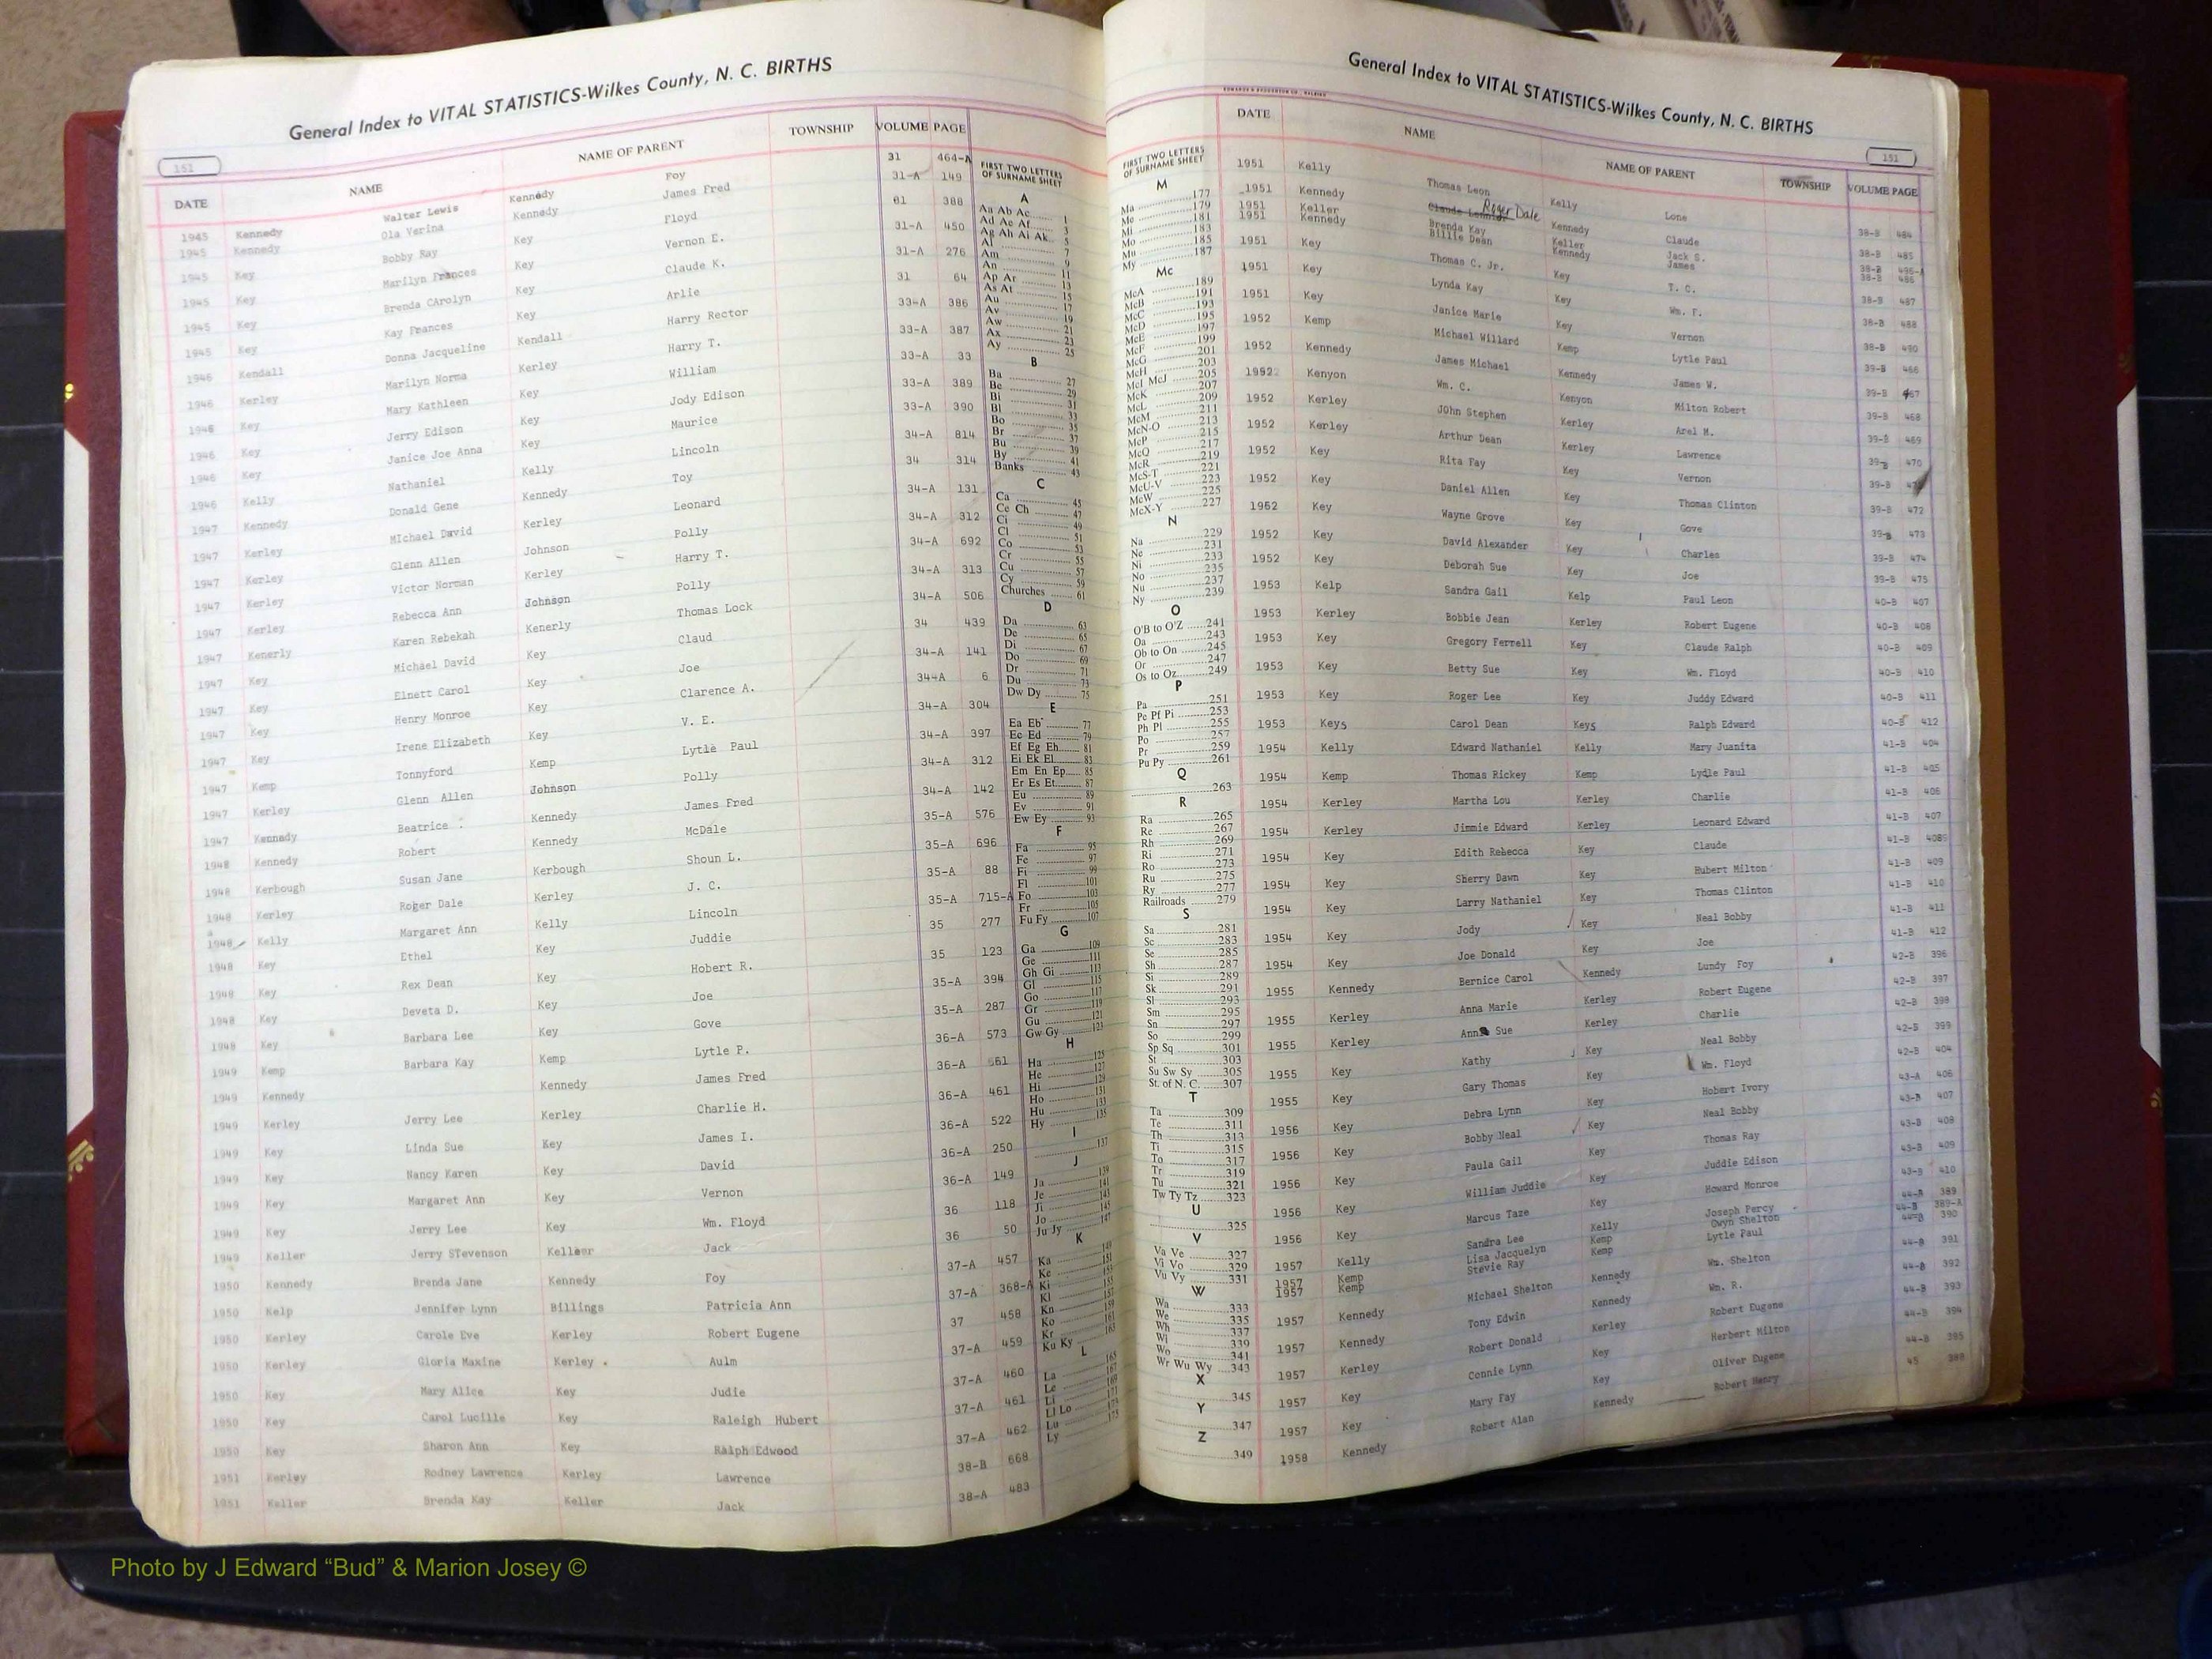 General Index to VITAL STATISTICS-Wilkes County, N. C. BIRTHS
151
DATE NAME NAME OF PARENT TOWNSHIP VOLUME PAGE
1945 Kennedy Walter Lewis Kennedy Foy 31 464-A
1945 Kennedy Ola Verina Kennedy James Fred 31-A 149
1945 Key Bobby Ray Key Floyd 61 388
1945 Key Marilyn Frances Key Vernon E. 31-A 450
1945 Key Brenda CArolyn Key Claude K. 31-A 276
1945 Key Kay Frances Key Arlie 31 64
1946 Kendall Donna Jacqueline Kendall Harry Rector 33-A 386
1946 Kerley Marilyn Norma Kerley Harry T. 33-A 387
1946 Key Mary Kathleen Key William 33-A 33
1946 Key Jerry Edison Key Jody Edison 33-A 389
1946 Key Janice Joe Anna Key Maurice 33-A 390
1946 Kelly Nathaniel Kelly Lincoln 34-A 814
1947 Kennedy Donald Gene Kennedy Toy 34 314
1947 Kerley MIchael David Kerley Leonard 34-A 131
1947 Kerley Glenn Allen Johnson Polly 34-A 312
1947 Kerley Victor Norman Kerley Harry T. 34-A 692
1947 Kerley Rebecca Ann Johnson Polly 34-A 313
1947 Kenerly Karen Rebekah Kenerly Thomas Lock 34-A 506
1947 Key Michael David Key Claud 34 439
1947 Key Elnett Carol Key Joe 34-A 141
1947 Key Henry Monroe Key Clarence A. 34-A 6
1947 Key Irene Elizabeth Key V. E. 34-A 304
1947 Kemp Tonnyford Kemp Lytle Paul 34-A 397
1947 Kerley Glenn Allen Johnson Polly 34-A 312
1947 Kennedy Beatrice Kennedy James Fred 34-A 142
1948 Kennedy Robert Kennedy McDale 35-A 576
1948 Kerbough Susan Jane Kerbough Shoun L. 35-A 696
1948 Kerley Roger Dale Kerley J. C. 35-A 88
1948 Kelly Margaret Ann Kelly Lincoln 35-A 715-A
1948 Key Ethel Key Juddie 35 277
1948 Key Rex Dean Key Hobert R. 35 123
1948 Key Deveta D. Key Joe 35-A 394
1948 Key Barbara Lee Key Gove 35-A 287
1949 Kemp Barbara Kay Kemp Lytle P. 36-A 573
1949 Kennedy Kennedy James Fred 36-A 561
1949 Kerley Jerry Lee Kerley Charlie H. 36-A 461
1949 Key Linda Sue Key James I. 36-A 522
1949 Key Nancy Karen Key David 36-A 250
1949 Key Margaret Ann Key Vernon 36-A 149
1949 Key Jerry Lee Key Wm. Floyd 36 118
1949 Keller Jerry STevenson Keller Jack 36 50
1950 Kennedy Brenda Jane Kennedy Foy 37-A 457
1950 Kelp Jennifer Lynn Billings Patricia Ann 37-A 368-A
1950 Kerley Carole Eve Kerley Robert Eugene 37 458
1950 Kerley Gloria Maxine Kerley Aulm 37-A 459
1950 Key Mary Alice Key Judie 37-A 460
1950 Key Carol Lucille Key Raleigh Hubert 37-A 461
1950 Key Sharon Ann Key Ralph Edwood 37-A 462
1951 Kerley Rodney Lawrence Kerley Lawrence 38-B 668
1951 Keller Brenda Kay Keller Jack 38-A 483
FIRST TWO LETTERS
OF SURNAME SHEET
A
Aa Ab Ac 1
Ad Ae Af 3
Ag Ah Ai Ak 5
Al 7
Am 9
An 11
Ap Ar 13
As At 15
Au 17
Av 19
Aw 21
Ax 23
Ay 25
B
Ba 27
Be 29
Bi 31
Bl 33
Bo 35
Br 37
Bu 39
By 41
Banks 43
C
Ca 45
Ce Ch 47
Ci 49
Cl 51
Co 53
Cr 55
Cu 57
Cy 59
Churches 61
D
Da 63
De 65
Di 67
Do 69
Dr 71
Du 73
Dw Dy 75
E
Ea Eb 77
Ec Ed 79
Ef Eg Eh 81
Ei Ek El 83
Em En Ep 85
Er Es Et 87
Eu 89
Ev 91
Ew Ey 93
F
Fa 95
Fe 97
Fi 99
Fl 101
Fo 103
Fr 105
Fu Fy 107
G
Ga 109
Ge 111
Gh Gi 113
Gl 115
Go 117
Gr 119
Gu 121
Gw Gy 123
H
Ha 125
He 127
Hi 129
Ho 131
Hu 133
Hy 135
I
137
J
Ja 139
Je 141
Ji 143
Jo 145
Ju Jy 147
K
Ka 149
Ke 151
Ki 153
Kl 155
Kn 157
Ko 159
Kr 161
Ku Ky 163
L
La 165
Le 167
Li 169
Ll Lo 171
Lu 173
Ly 175
General Index to VITAL STATISTICS-Wilkes County, N. C. BIRTHS
151
DATE NAME NAME OF PARENT TOWNSHIP VOLUME PAGE
FIRST TWO LETTERS
OF SURNAME SHEET
M
Ma 177
Me 179
Mi 181
Mo 183
Mu 185
My 187
Mc
McA 189
McB 191
McC 193
McD 195
McE 197
McF 199
McG 201
McH 203
McI McJ 205
McK 207
McL 209
McM 211
McN-O 213
McP 215
McQ 217
McR 219
McS-T 221
McU-V 223
McW 225
McX-Y 227
N
Na 229
Ne 231
Ni 233
No 235
Nu 237
Ny 239
O
O'B to O'Z 241
Oa 243
Ob to On 245
Or 247
Os to Oz 249
P
Pa 251
Pe Pf Pi 253
Ph Pl 255
Po 257
Pr 259
Pu Py 261
Q
263
R
Ra 265
Re 267
Rh 269
Ri 271
Ro 273
Ru 275
Ry 277
Railroads 279
S
Sa 281
Sc 283
Se 285
Sh 287
Si 289
Sk 291
Sl 293
Sm 295
Sn 297
So 299
Sp Sq 301
St 303
Su Sw Sy 305
St. of N. C. 307
T
Ta 309
Te 311
Th 313
Ti 315
To 317
Tr 319
Tu 321
Tw Ty Tz 323
U
325
V
Va Ve 327
Vi Vo 329
Vu Vy 331
W
Wa 333
We 335
Wh 337
Wi 339
Wo 341
Wr Wu Wy 343
X
Y 345
Z 347
349
1951 Kelly Thomas Leon Kelly Lone 38-B 484
1951 Kennedy Roger Dale Kennedy Claude 38-B 485
1951 Keller Brenda Kay Keller Jack S. 38-B 496-A
1951 Kennedy Billie Dean Kennedy James 38-B 486
1951 Key Thomas C. Jr. Key T. C. 38-B 487
1951 Key Lynda Kay Key Wm. F. 38-B 488
1951 Key Janice Marie Key Vernon 38-B 490
1952 Kemp Michael Willard Kemp Lytle Paul 39-B 466
1952 Kennedy James Michael Kennedy James W. 39-B 467
1952 Kenyon Wm. C. Kenyon Milton Robert 39-B 468
1952 Kerley JOhn Stephen Kerley Arel M. 39-B 469
1952 Kerley Arthur Dean Kerley Lawrence 39-B 470
1952 Key Rita Fay Key Vernon 39-B
1952 Key Daniel Allen Key Thomas Clinton 39-B 472
1952 Key Wayne Grove Key Gove 39-B 473
1952 Key David Alexander Key Charles 39-B 474
1952 Key Deborah Sue Key Joe 39-B 475
1953 Kelp Sandra Gail Kelp Paul Leon 40-B 407
1953 Kerley Bobbie Jean Kerley Robert Eugene 40-B 408
1953 Key Gregory Ferrell Key Claude Ralph 40-B 409
1953 Key Betty Sue Key Wm. Floyd 40-B 410
1953 Key Roger Lee Key Juddy Edward 40-B 411
1953 Keys Carol Dean Keys Ralph Edward 40-B 412
1954 Kelly Edward Nathaniel Kelly Mary Juanita 41-B 404
1954 Kemp Thomas Rickey Kemp Lydle Paul 41-B 405
1954 Kerley Martha Lou Kerley Charlie 41-B 406
1954 Kerley Jimmie Edward Kerley Leonard Edward 41-B 407
1954 Key Edith Rebecca Key Claude 41-B 4089
1954 Key Sherry Dawn Key Hubert Milton 41-B 409
1954 Key Larry Nathaniel Key Thomas Clinton 41-B 410
1954 Key Jody Key Neal Bobby 41-B 411
1954 Key Joe Donald Key Joe 41-B 412
1955 Kennedy Bernice Carol Kennedy Lundy Foy 42-B 396
1955 Kerley Anna Marie Kerley Robert Eugene 42-B 397
1955 Kerley Ann Sue Kerley Charlie 42-B 398
1955 Key Kathy Key Neal Bobby 42-B 399
1955 Key Gary Thomas Key Wm. Floyd 42-B 404
1956 Key Debra Lynn Key Hobert Ivory 43-A 406
1956 Key Bobby Neal Key Neal Bobby 43-B 407
1956 Key Paula Gail Key Thomas Ray 43-B 408
1956 Key William Juddie Key Juddie Edison 43-B 409
1956 Key Marcus Taze Key Howard Monroe 43-B 410
1957 Kelly Sandra Lee Kelly Joseph Percy 44-B 389
1957 Kemp Lisa Jacquelyn Kemp Gwyn Shelton 44-B 389-A
1957 Kemp Stevie Ray Kemp Lytle Paul 44-B 390
1957 Kennedy Michael Shelton Kennedy Wm. Shelton 44-B 391
1957 Kennedy Tony Edwin Kennedy Wm. R. 44-B 392
1957 Kerley Robert Donald Kerley Robert Eugene 44-B 393
1957 Key Connie Lynn Key Herbert Milton 44-B 394
1957 Key Mary Fay Key Oliver Eugene 44-B 395
1958 Kennedy Robert Alan Kennedy Robert Henry 45 388
Photo by J Edward “Bud” & Marion Josey ©